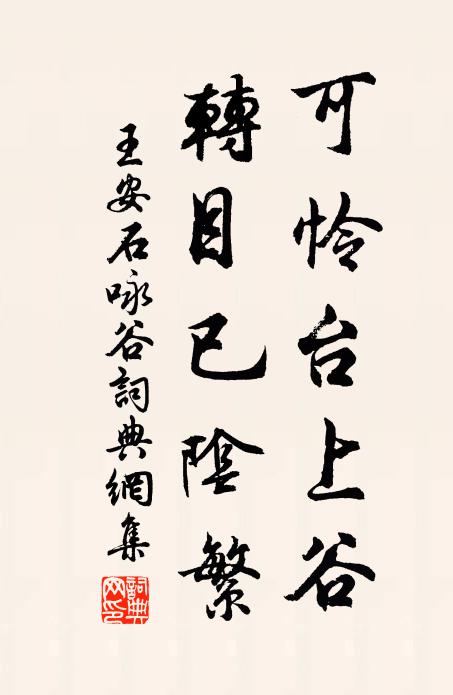 可怜台上谷
轉目已陰繁
王安石咏谷詞典網集
詞典网印